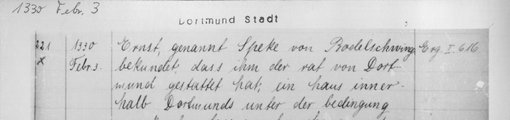 1330 Febr. 3
Dortmund Stadt
221 1330 Ernst, genannt Speke von Bodelschwing Erg I. 616
x Febr. 3. bekundet, dass ihm der rat von Dort-
mund gestattet hat, ein haus inner-
halb Dortmunds unter der bedingung